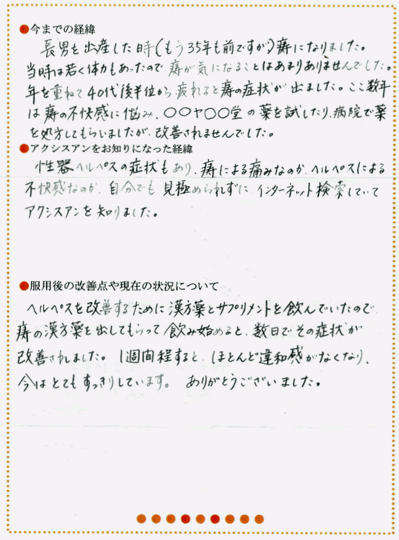 ●今までの経緯
長男を出産した時(もう35年も前ですが)痔になりました。
当時は若く体力もあったので痔が気になることはあまりありませんでした。
年を重ねて40代後半位から疲れると痔の症状が出ました。ここ数年
は痔の不快感に悩み、〇〇や〇〇堂の薬を試したり、病院で薬
を処方してもらいましたが、改善されませんでした。
●アクシスアンをお知りになった経緯
性器ヘルペスの症状もあり、痔による痛みなのか、ヘルペスによる
不快感なのか、自分でも見極められずにインターネット検索していて
アクシスアンを知りました。
●服用後の改善点や現在の状況について
ヘルペスを改善するために漢方薬とサプリメントを飲んでいたので、
痔の漢方薬を出してもらって飲み始めると、数日でその症状が
改善されました。1週間程すると、ほとんど違和感がなくなり、
今はとてもすっきりしています。 ありがとうございました。